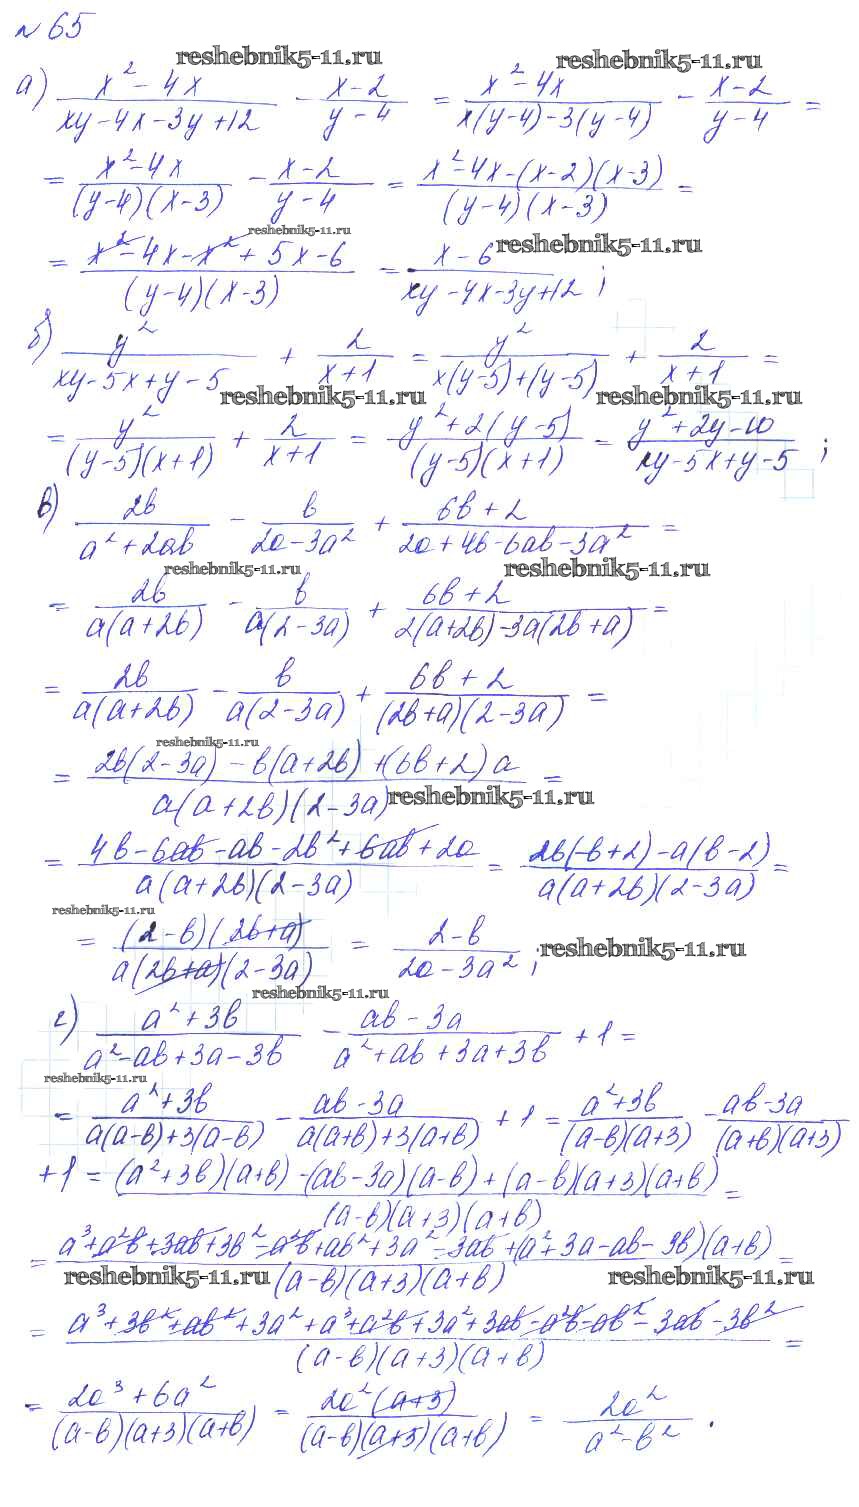 № 65
reshebnik5-11.ru reshebnik5-11.ru
а) (x² - 4x)/(xy - 4x - 3y + 12) - (x - 2)/(y - 4) = (x² - 4x)/(x(y - 4) - 3(y - 4)) - (x - 2)/(y - 4) =
= (x² - 4x)/((y - 4)(x - 3)) - (x - 2)/(y - 4) = (x² - 4x - (x - 2)(x - 3))/((y - 4)(x - 3)) =
reshebnik5-11.ru reshebnik5-11.ru
= (x² - 4x - x² + 5x - 6)/((y - 4)(x - 3)) = (x - 6)/(xy - 4x - 3y + 12);
б) y²/(xy - 5x + y - 5) + 2/(x + 1) = y²/(x(y - 5) + (y - 5)) + 2/(x + 1) =
reshebnik5-11.ru reshebnik5-11.ru
= y²/((y - 5)(x + 1)) + 2/(x + 1) = (y² + 2(y - 5))/((y - 5)(x + 1)) = (y² + 2y - 10)/(xy - 5x + y - 5);
в) 2b/(a² + 2ab) - b/(2a - 3a²) + (6b + 2)/(2a + 4b - 6ab - 3a²) =
reshebnik5-11.ru reshebnik5-11.ru
= 2b/(a(a + 2b)) - b/(a(2 - 3a)) + (6b + 2)/(2(a + 2b) - 3a(2b + a)) =
= 2b/(a(a + 2b)) - b/(a(2 - 3a)) + (6b + 2)/((2b + a)(2 - 3a)) =
reshebnik5-11.ru
= (2b(2 - 3a) - b(a + 2b) + (6b + 2)a)/(a(a + 2b)(2 - 3a)) =
reshebnik5-11.ru
= (4b - 6ab - ab - 2b² + 6ab + 2a)/(a(a + 2b)(2 - 3a)) = (2b(-b + 2) - a(b - 2))/(a(a + 2b)(2 - 3a)) =
reshebnik5-11.ru
= ((2 - b)(2b + a))/(a(2b + a)(2 - 3a)) = (2 - b)/(2a - 3a²);
reshebnik5-11.ru
reshebnik5-11.ru
г) (a² + 3b)/(a² - ab + 3a - 3b) - (ab - 3a)/(a² + ab + 3a + 3b) + 1 =
reshebnik5-11.ru
= (a² + 3b)/(a(a - b) + 3(a - b)) - (ab - 3a)/(a(a + b) + 3(a + b)) + 1 = (a² + 3b)/((a - b)(a + 3)) - (ab - 3a)/((a + b)(a + 3))
+ 1 = ((a² + 3b)(a + b) - (ab - 3a)(a - b) + (a - b)(a + 3)(a + b))/((a - b)(a + 3)(a + b)) =
= (a³ + a²b + 3ab + 3b² - a²b + ab² + 3a² - 3ab + (a² + 3a - ab - 3b)(a + b))/((a - b)(a + 3)(a + b)) =
reshebnik5-11.ru reshebnik5-11.ru
= (a³ + 3b² + ab² + 3a² + a³ + a²b + 3a² + 3ab - a²b - ab² - 3ab - 3b²)/((a - b)(a + 3)(a + b)) =
= (2a³ + 6a²)/((a - b)(a + 3)(a + b)) = (2a²(a + 3))/((a - b)(a + 3)(a + b)) = 2a²/(a² - b²).